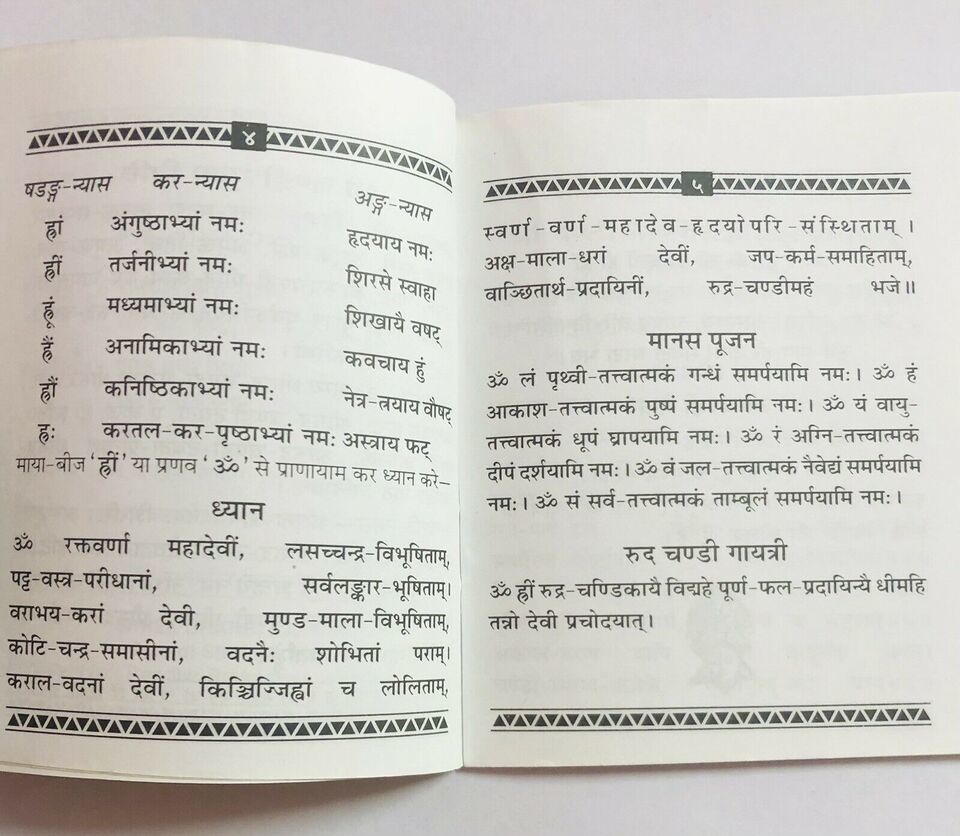 ४
षडङ्ग-न्यास कर-न्यास अङ्ग-न्यास
ह्रां अंगुष्ठाभ्यां नमः हृदयाय नमः
ह्रीं तर्जनीभ्यां नमः शिरसे स्वाहा
ह्रूं मध्यमाभ्यां नमः शिखायै वषट्
ह्रैं अनामिकाभ्यां नमः कवचाय हुं
ह्रौं कनिष्ठिकाभ्यां नमः नेत्र-त्रयाय वौषट्
ह्रः करतल-कर-पृष्ठाभ्यां नमः अस्त्राय फट्
माया-बीज 'ह्रीं' या प्रणव 'ॐ' से प्राणायाम कर ध्यान करे–
ध्यान
ॐ रक्तवर्णा महादेवीं, लसच्चन्द्र-विभूषिताम्,
पट्ट-वस्त्र-परीधानां, सर्वलङ्कार-भूषिताम्।
वराभय-करां देवी, मुण्ड-माला-विभूषिताम्,
कोटि-चन्द्र-समासीनां, वदनैः शोभितां पराम्।
कराल-वदनां देवीं, किञ्चिज्जिह्वां च लोलिताम्,
५
स्वर्ण-वर्ण-महादेव-हृदयोपरि-संस्थिताम्।
अक्ष-माला-धरां देवीं, जप-कर्म-समाहिताम्,
वाञ्छितार्थ-प्रदायिनीं, रुद्र-चण्डीमहं भजे॥
मानस पूजन
ॐ लं पृथ्वी-तत्त्वात्मकं गन्धं समर्पयामि नमः। ॐ हं
आकाश-तत्त्वात्मकं पुष्पं समर्पयामि नमः। ॐ यं वायु-
तत्त्वात्मकं धूपं घ्रापयामि नमः। ॐ रं अग्नि-तत्त्वात्मकं
दीपं दर्शयामि नमः। ॐ वं जल-तत्त्वात्मकं नैवेद्यं समर्पयामि
नमः। ॐ सं सर्व-तत्त्वात्मकं ताम्बूलं समर्पयामि नमः।
रुद चण्डी गायत्री
ॐ ह्रीं रुद्र-चण्डिकायै विद्महे पूर्ण-फल-प्रदायिन्यै धीमहि
तन्नो देवी प्रचोदयात्।